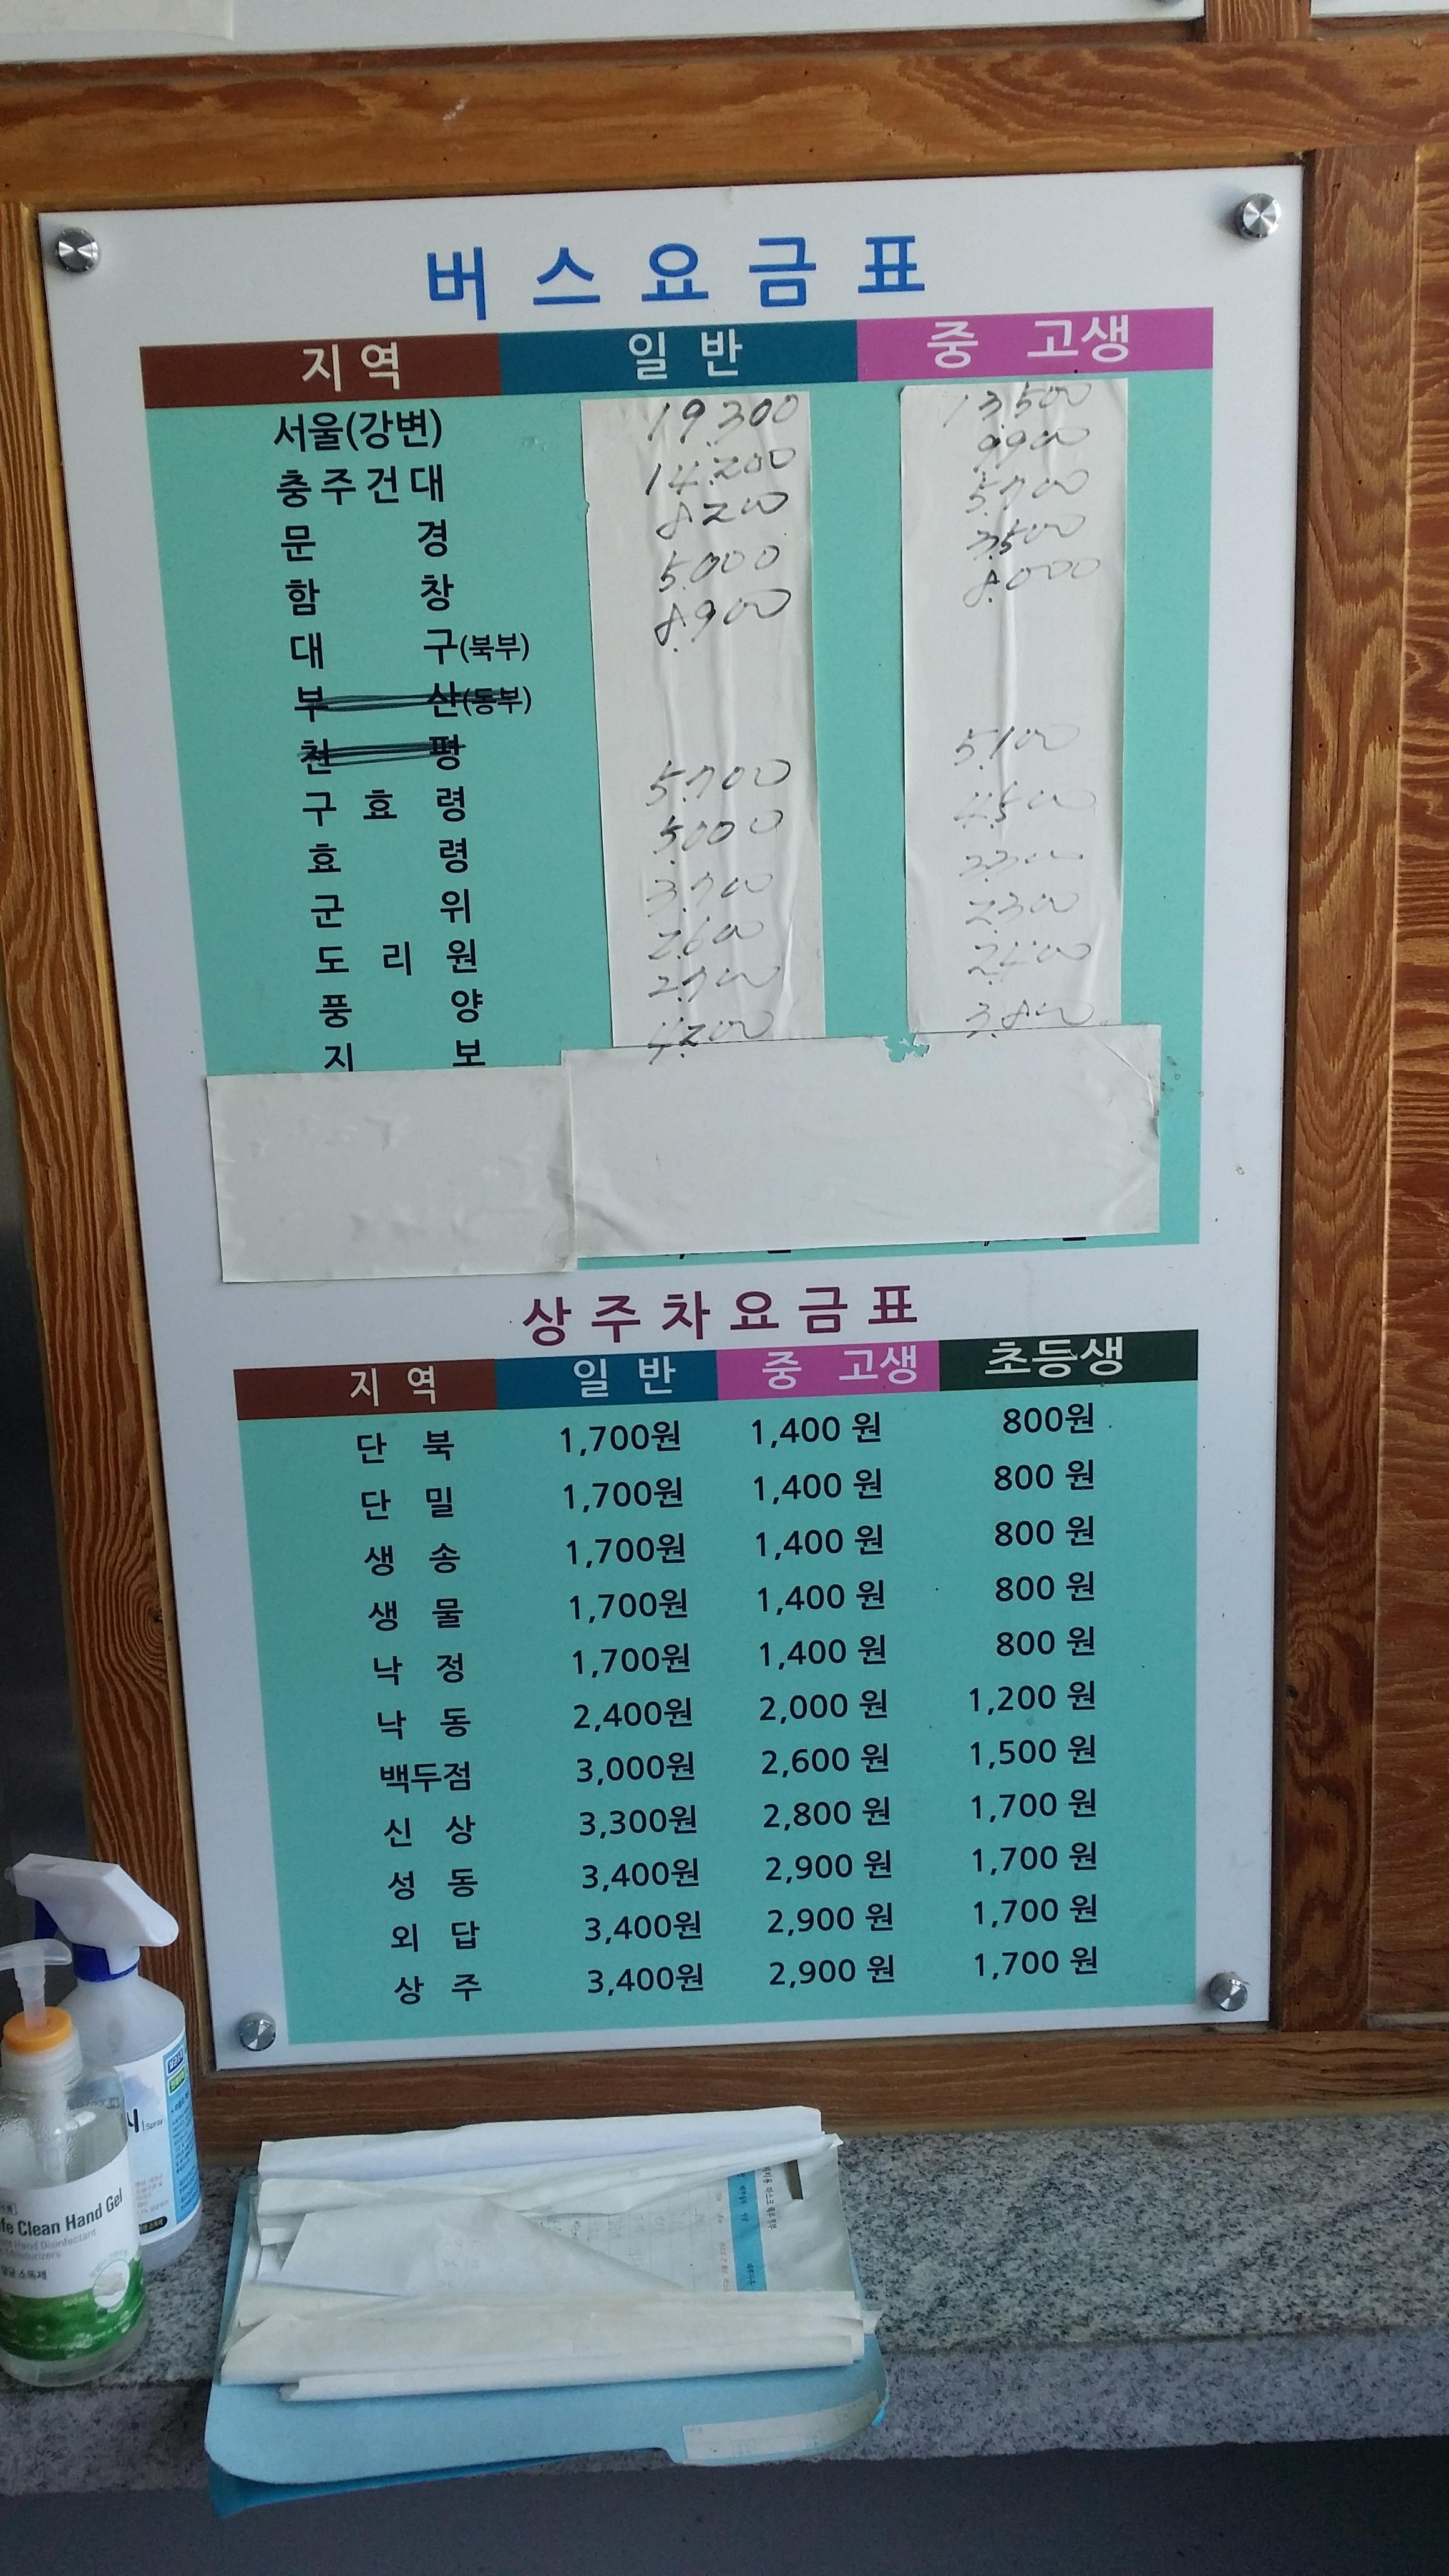 버스요금표
지역 일반 중고생
서울(강변) 19.300 13.500
충주건대 14.200 9900
문경 8200 5.700
함창 5.000 3.500
대구(북부) 8.900 8.000
부산(동부)
천평
구효령 5.700 5.100
효령 5.000 4.500
군위 3.700
도리원 2.600 2.300
풍양 2.700 2.400
지보 4.200 3.800
상주차요금표
지역 일반 중고생 초등생
단북 1,700원 1,400 원 800원
단밀 1,700원 1,400 원 800 원
생송 1,700원 1,400 원 800 원
생물 1,700원 1,400 원 800 원
낙정 1,700원 1,400 원 800 원
낙동 2,400원 2,000 원 1,200 원
백두점 3,000원 2,600 원 1,500 원
신상 3,300원 2,800 원 1,700 원
성동 3,400원 2,900 원 1,700 원
외답 3,400원 2,900 원 1,700 원
상주 3,400원 2,900 원 1,700 원
Spray
Clean Hand Gel
Hand Disinfectant
소독제
500ml